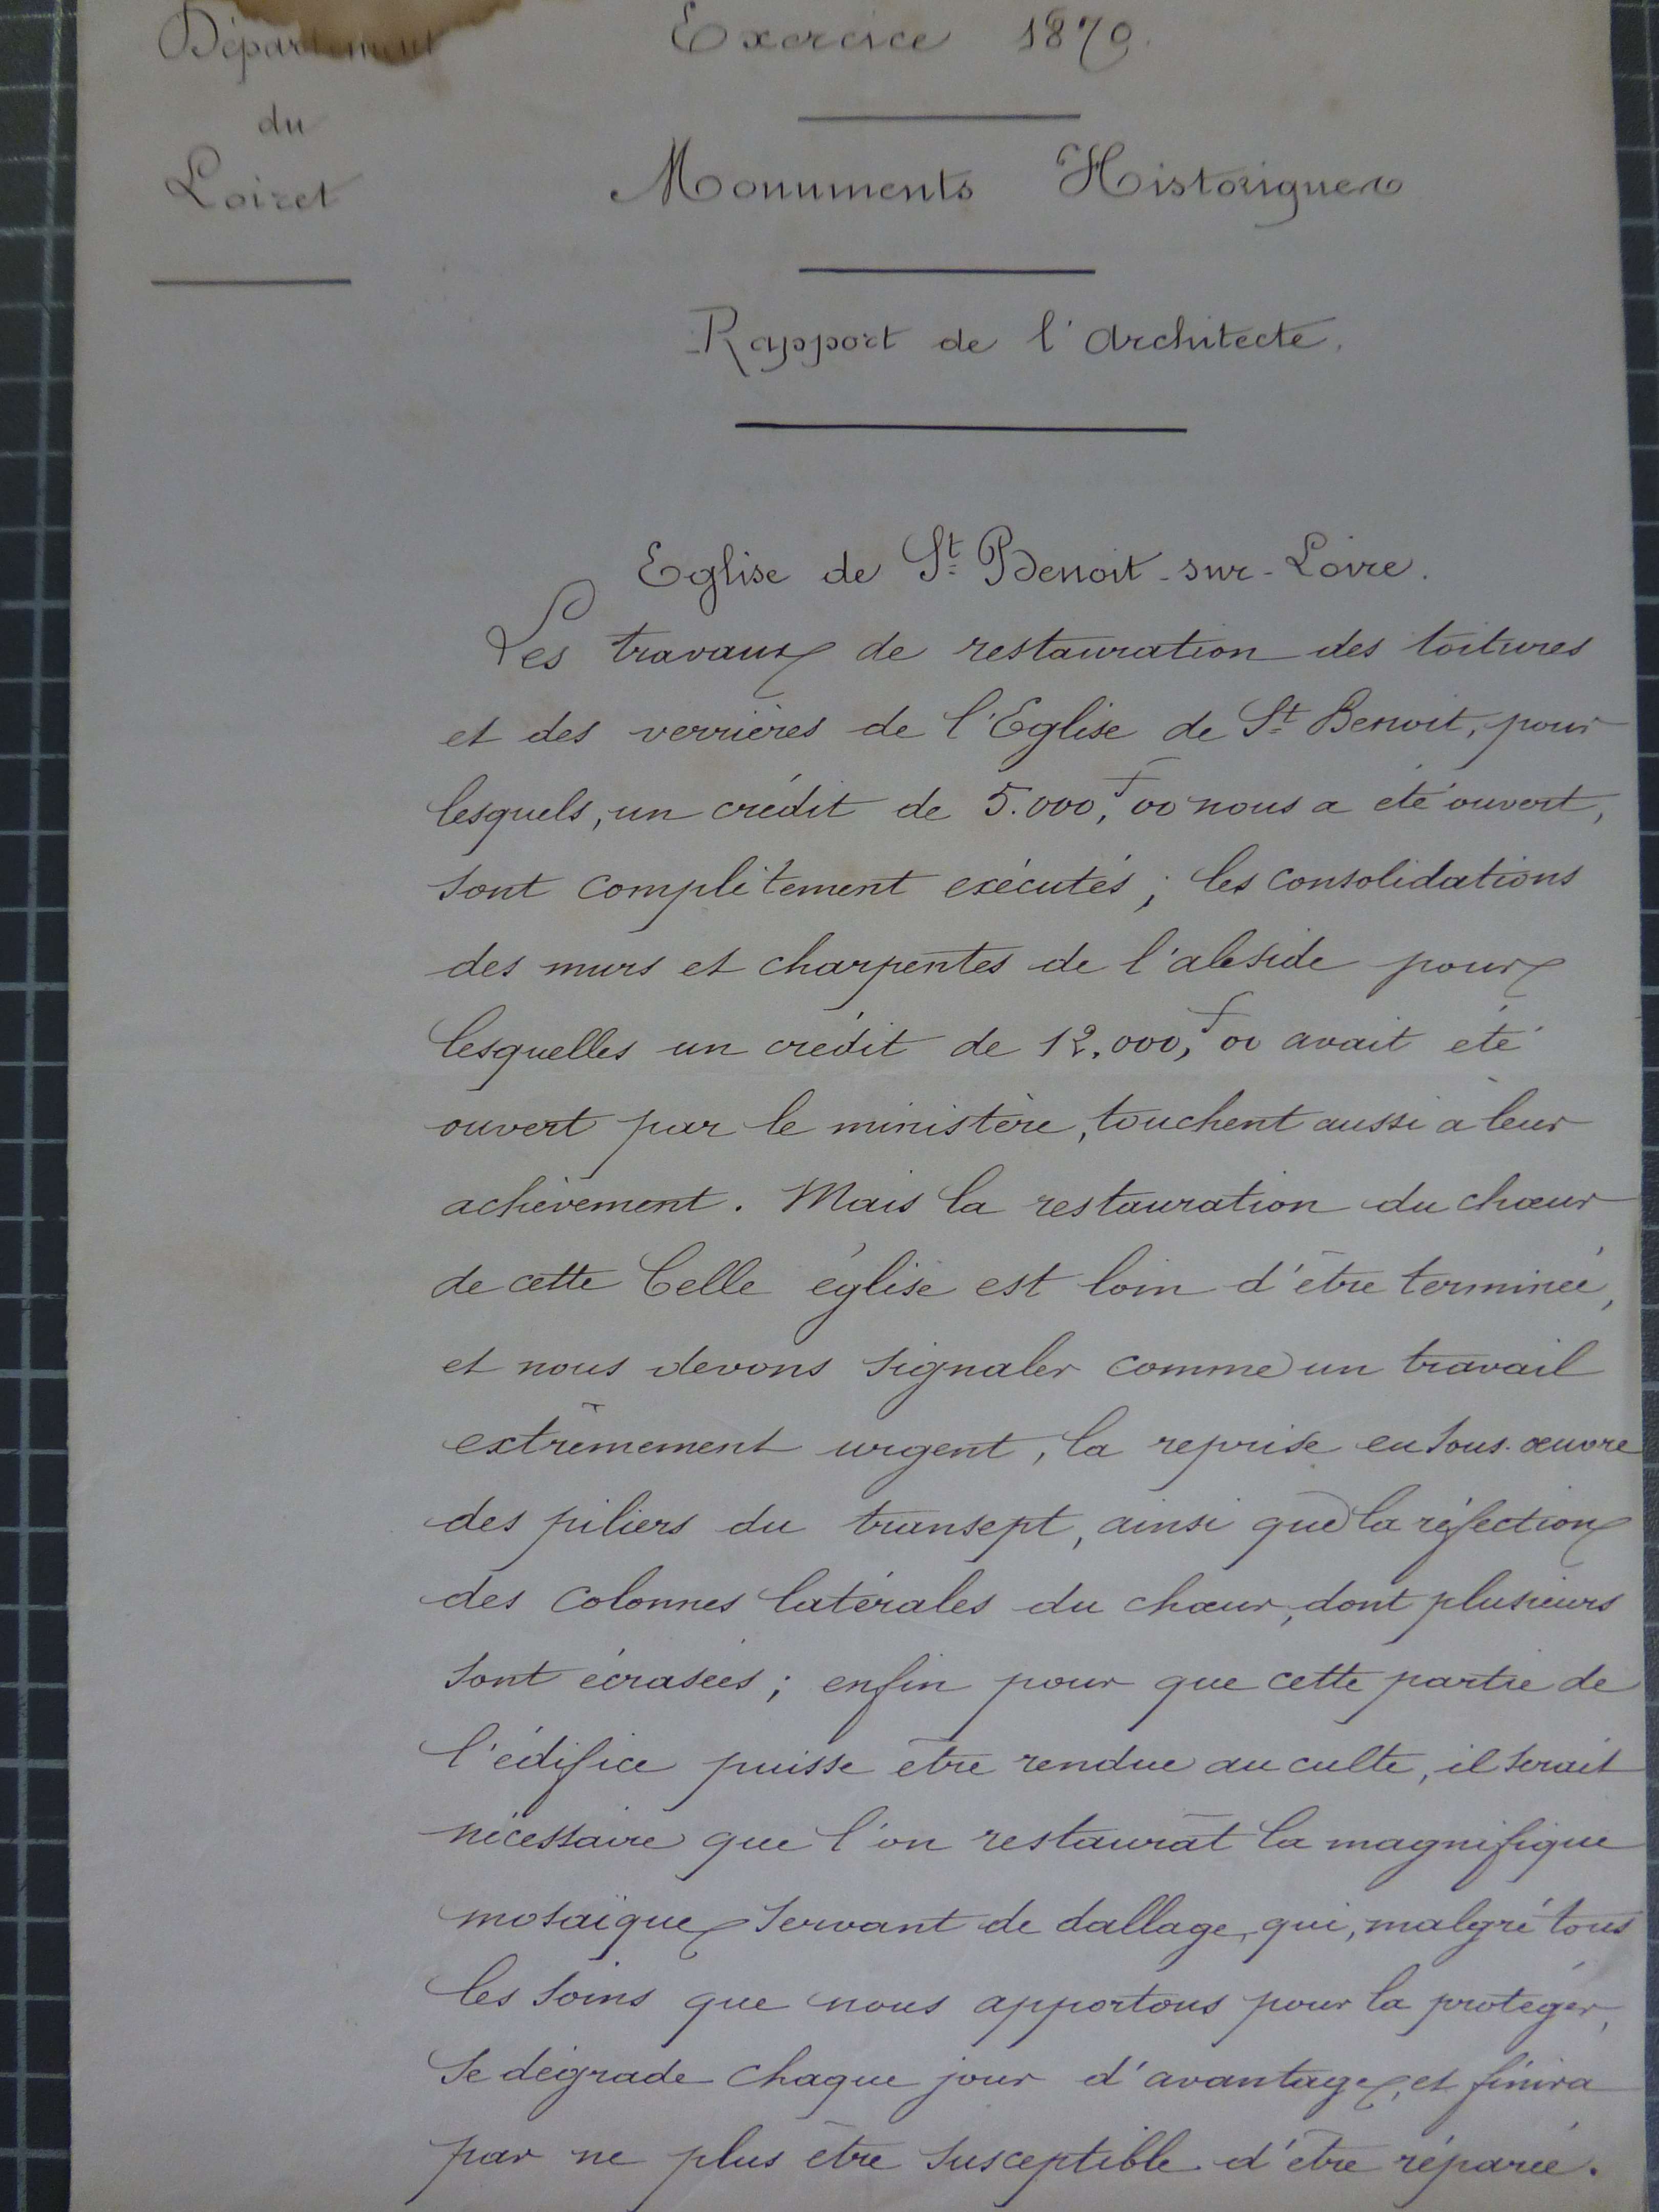 Département
du
Loiret
Exercice 1879.
Monuments Historiques
Rapport de l'Architecte.
Eglise de St Benoit-sur-Loire.
Les travaux de restauration des toitures
et des verrières de l'Eglise de St Benoit, pour
lesquels, un crédit de 5.000,f00 nous a été ouvert,
sont complètement exécutés ; les consolidations
des murs et charpentes de l'abside pour
lesquelles un crédit de 12.000,f00 avait été
ouvert par le ministère, touchent aussi à leur
achèvement. Mais la restauration du chœur
de cette belle église est loin d'être terminée,
et nous devons signaler comme un travail
extrêmement urgent, la reprise en sous-œuvre
des piliers du transept, ainsi que la réfection
des colonnes latérales du chœur, dont plusieurs
sont écrasées ; enfin pour que cette partie de
l'édifice puisse être rendue au culte, il serait
nécessaire que l'on restaurât la magnifique
mosaïque servant de dallage, qui, malgré tous
les soins que nous apportons pour la protéger,
se dégrade chaque jour d'avantage, et finira
par ne plus être susceptible d'être réparée.